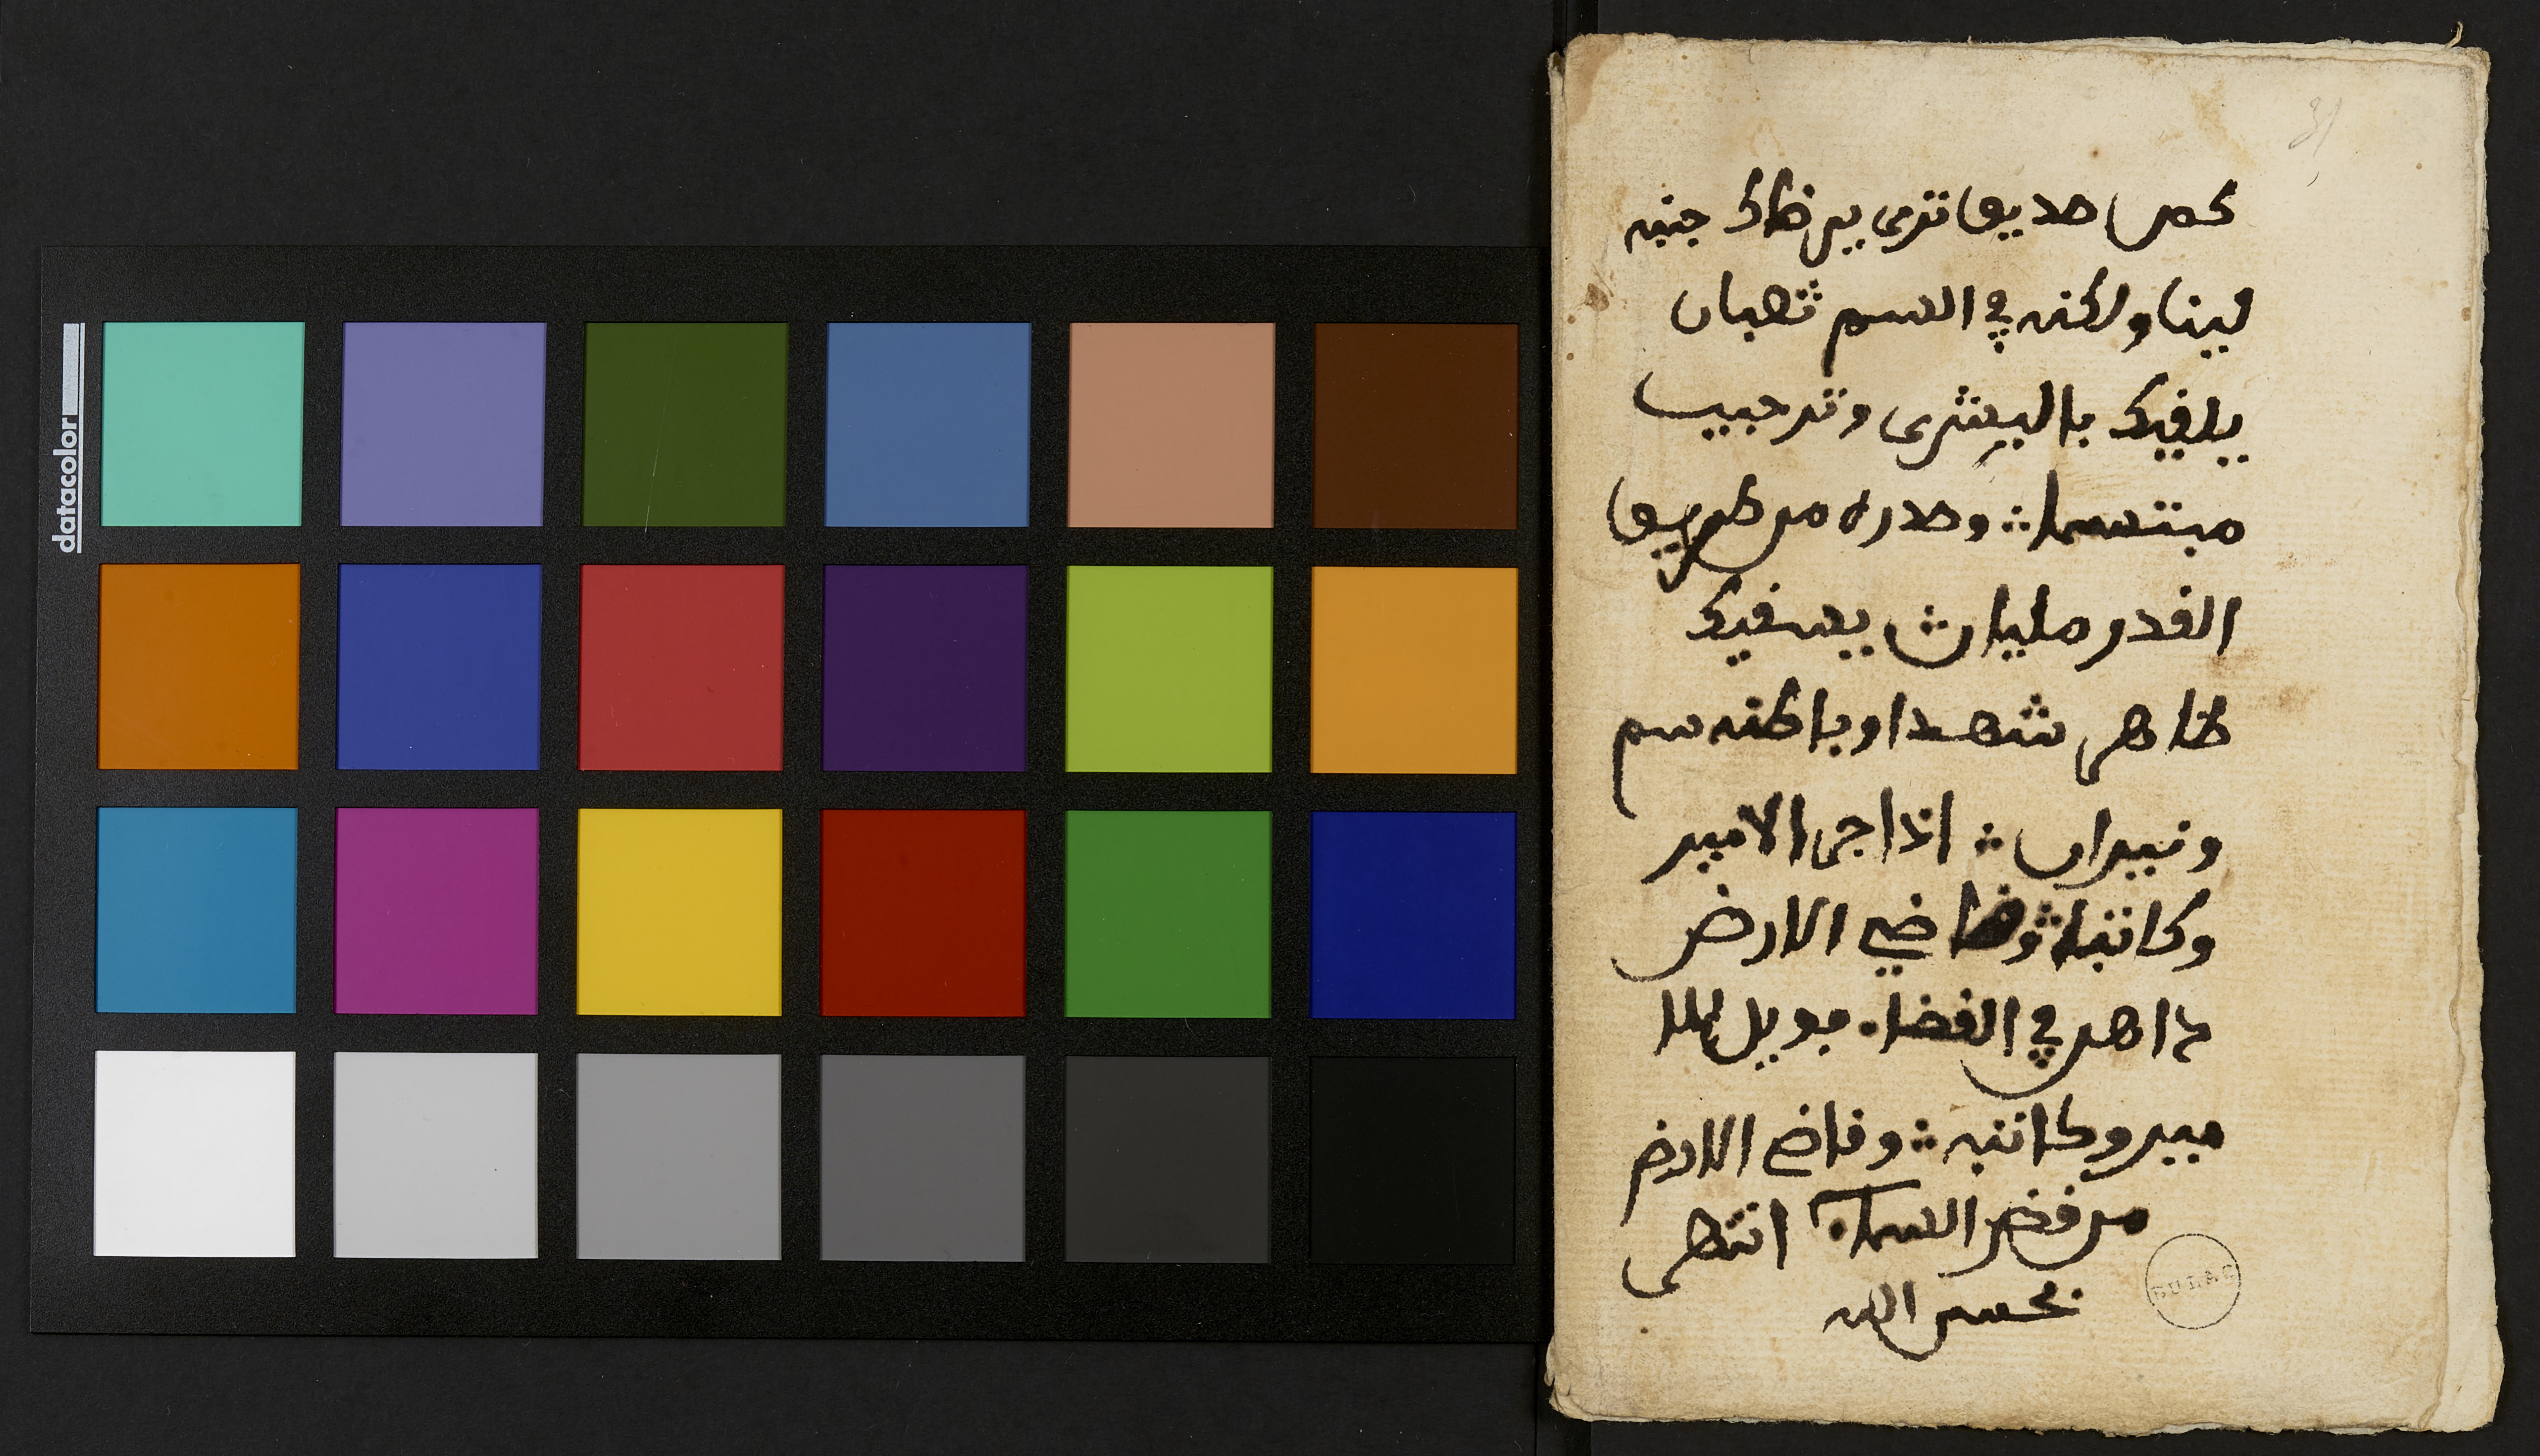 31
كم من صديق ترى بين ظاك جنبه
لينا ولكنه في السم ثعبان
يلفيك بالبشرى وترحيب
مبتسما وصدره من طريق
الغدر مليان يسفيك
ظاهر شهدا وباطنه سم
ونيران اذا جى الامير
وكاتباه وقاضي الارض
داهن في الفضاء فويل للا
مير وكاتبه وقاض الارض
من فض السماء انتهى
بحسن الله
BULAC
datacolor